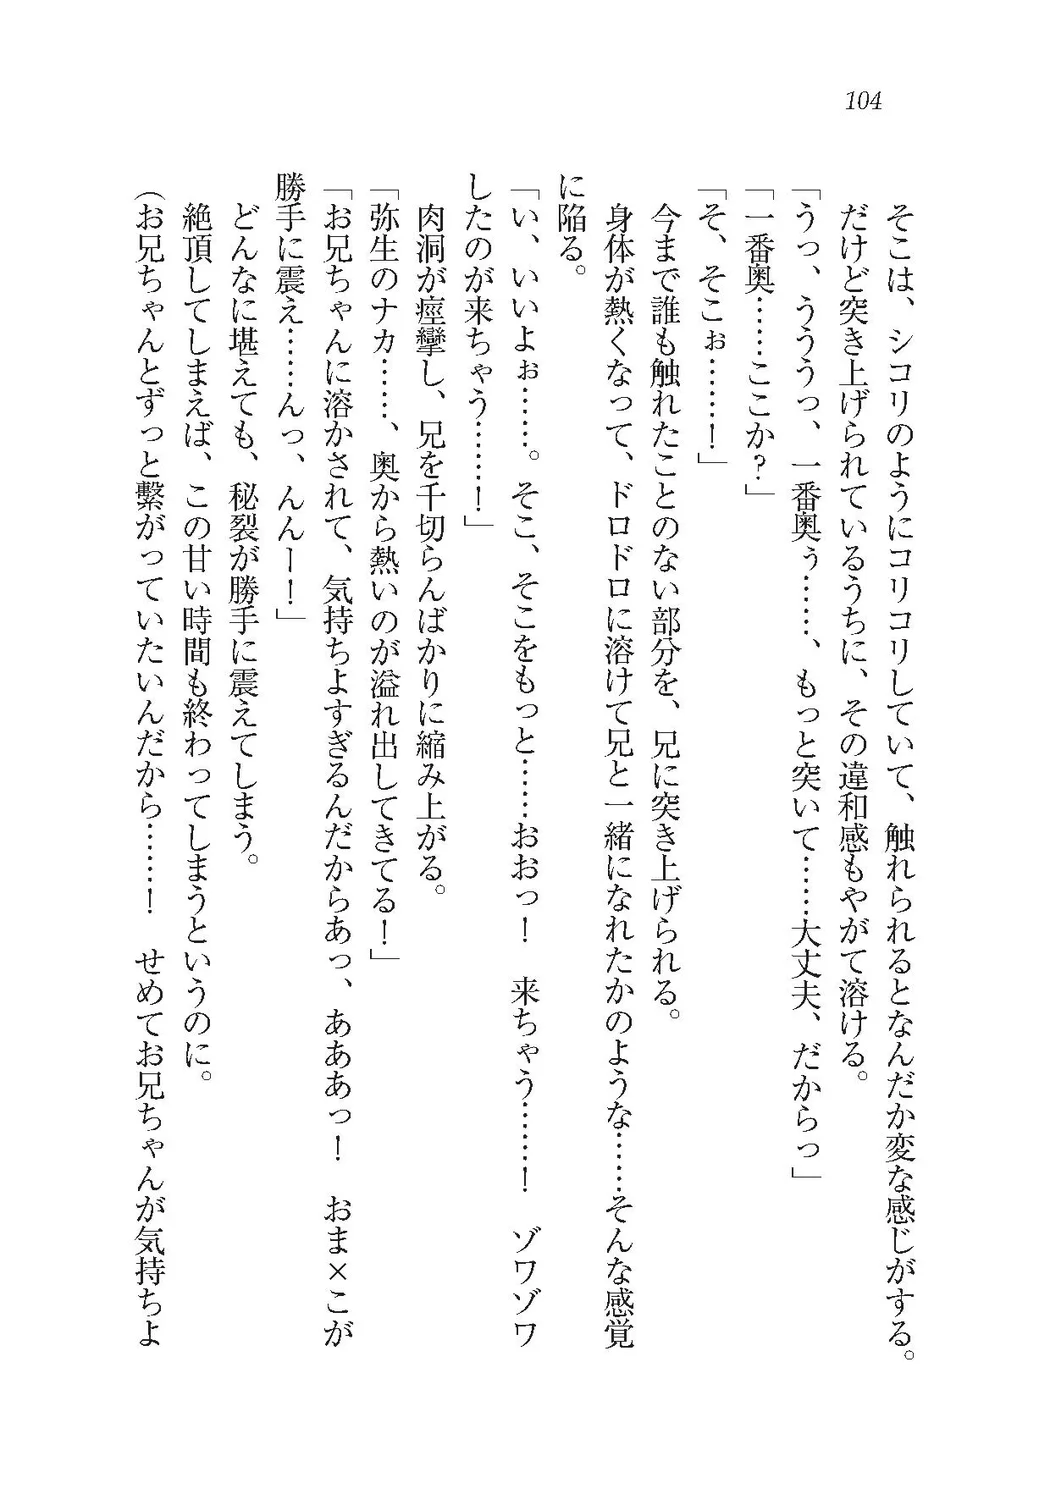 104
そこは、シコリのようにコリコリしていて、触れられるとなんだか変な感じがする。
だけど突き上げられているうちに、その違和感もやがて溶ける。
「うっ、うううっ、一番奥ぅ……、もっと突いて……大丈夫、だからっ」
「一番奥……ここか?」
「そ、そこぉ……!」
今まで誰も触れたことのない部分を、兄に突き上げられる。
身体が熱くなって、ドロドロに溶けて兄と一緒になれたかのような……そんな感覚
に陥る。
「い、いいよぉ……。そこ、そこをもっと……おおっ! 来ちゃう……! ゾワゾワ
したのが来ちゃう……!」
肉洞が痙攣し、兄を千切らんばかりに縮み上がる。
「弥生のナカ……、奥から熱いのが溢れ出してきてる!」
「お兄ちゃんに溶かされて、気持ちよすぎるんだからあっ、あああっ! おま×こが
勝手に震え……んっ、んんー!」
どんなに堪えても、秘裂が勝手に震えてしまう。
絶頂してしまえば、この甘い時間も終わってしまうというのに。
(お兄ちゃんとずっと繋がっていたいんだから……! せめてお兄ちゃんが気持ちよ